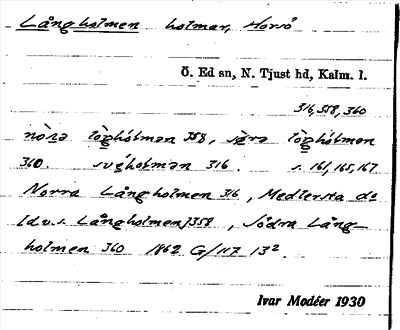 Långholmen holmar, Horsö
Ö. Ed sn, N. Tjust hd, Kalm. l.
316, 358, 360
holmən 358,
360. holmən 316. s. 161, 165, 167
Norra Långholmen 316, Mellersta d:o
[d.v.s. Långholmen] 358, Södra Lång-
holmen 360 1862 G/117 13²
Ivar Modéer 1930